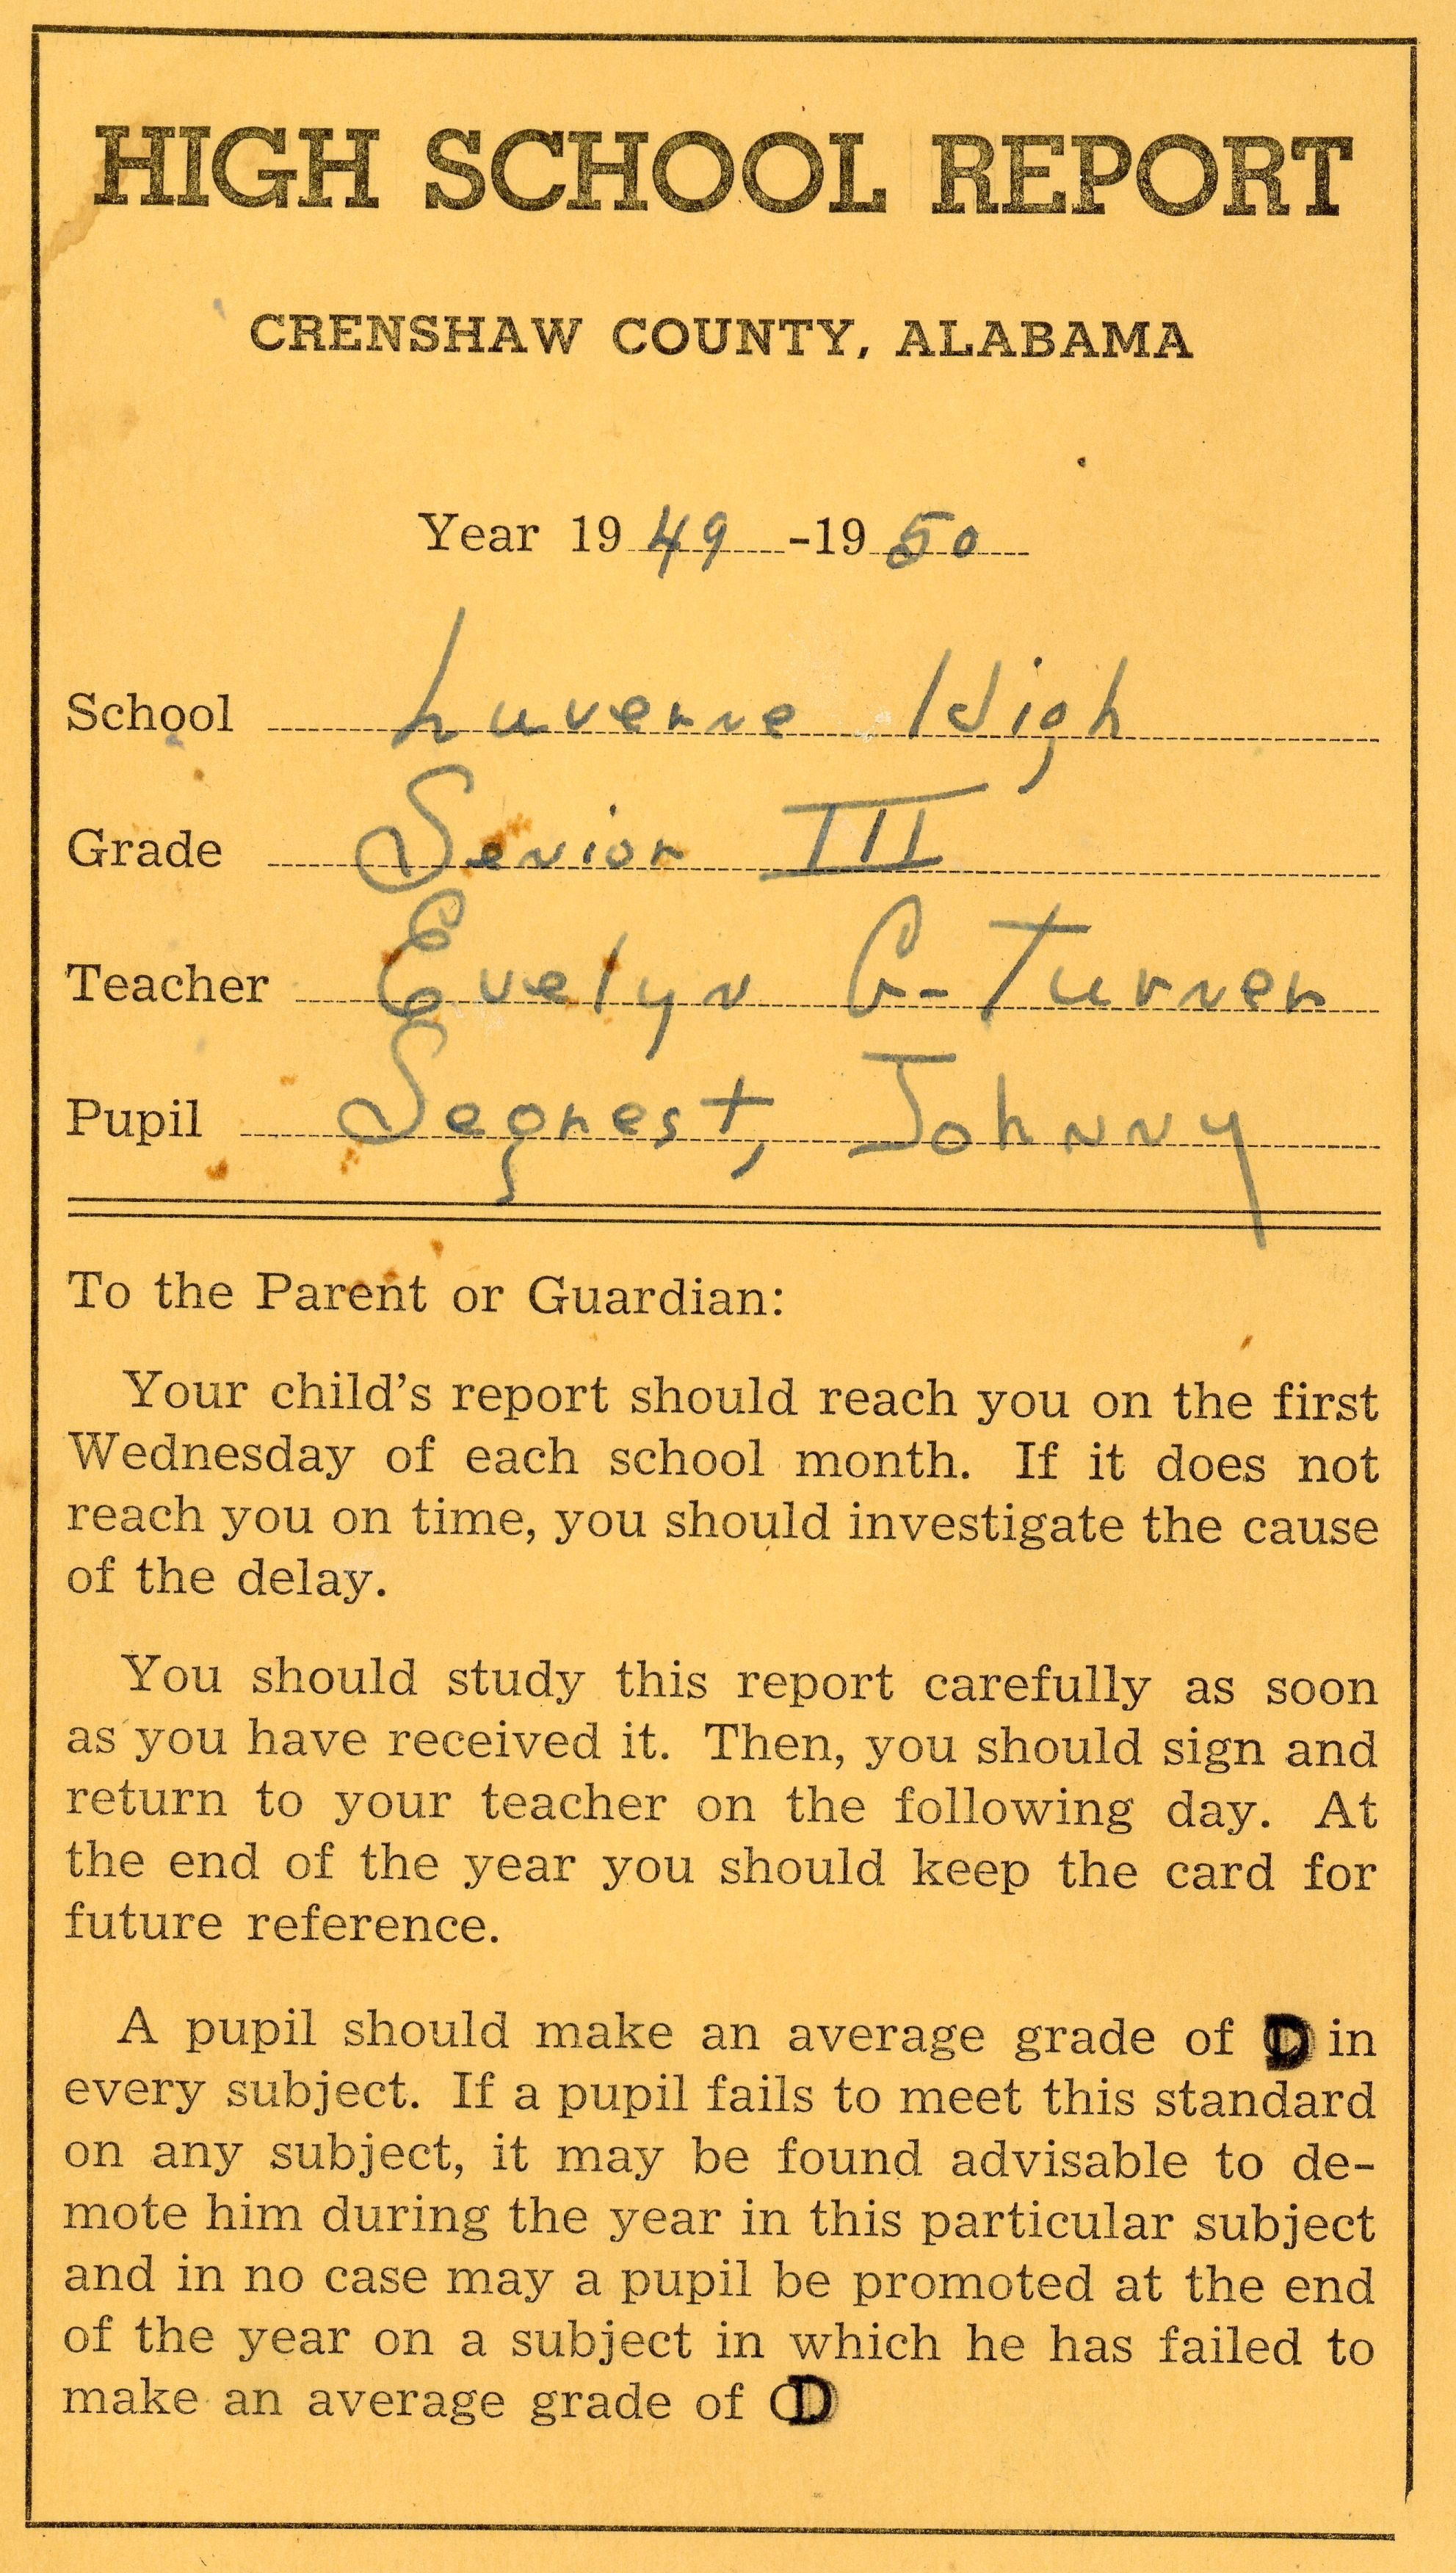 HIGH SCHOOL REPORT
CRENSHAW COUNTY, ALABAMA
Year 1949 -1950
School Luverne High
Grade Senior III
Teacher Evelyn G. Turner
Pupil Segrest, Johnny
To the Parent or Guardian:
Your child's report should reach you on the first
Wednesday of each school month. If it does not
reach you on time, you should investigate the cause
of the delay.
You should study this report carefully as soon
as you have received it. Then, you should sign and
return to your teacher on the following day. At
the end of the year you should keep the card for
future reference.
A pupil should make an average grade of D in
every subject. If a pupil fails to meet this standard
on any subject, it may be found advisable to de-
mote him during the year in this particular subject
and in no case may a pupil be promoted at the end
of the year on a subject in which he has failed to
make an average grade of D